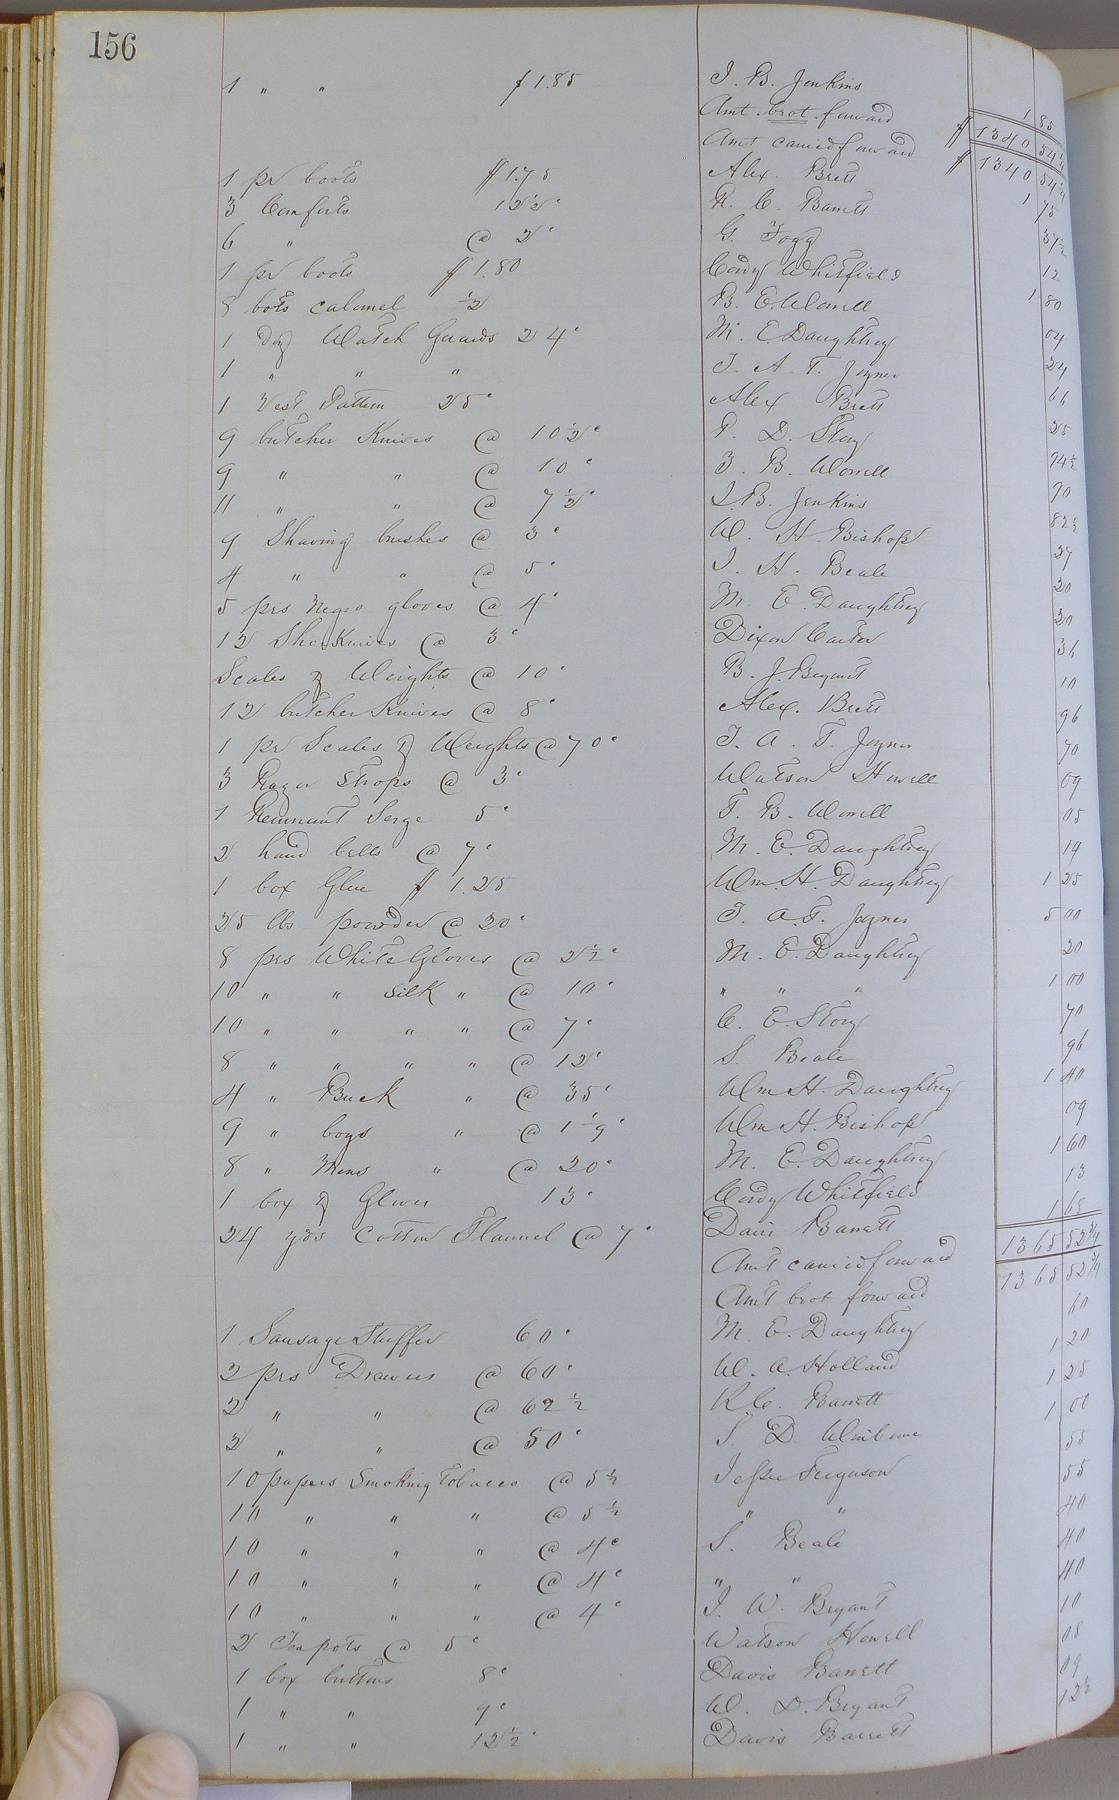 156
1 " " $1.85 J. B. Jenkins 1 85
Amt. brot. forward $1340 54 1/4
Amt carried forward $1340 54 1/4
1 pr boots $1.75 Alex. Brett 1 75
3 Comforts 12½c R. C. Barrett 37½
6 " @ 2c G. Fogg 12
1 pr boots $1.80 Cordy Whitfield 1 80
8 bots calomel ½ B. E. Worrell 04
1 doz Watch Guards 24c M. E Daughtrey 24
1 " " " J. A. T. Joyner 66
1 Vest Pattern 25c Alex Brett 25
9 butcher Knives @ 10½c P. D. Story 94½
9 " " @ 10c B. Worrell 90
11 " " @ 7½c J. B. Jenkins 82½
9 Shaving brushes @ 3c W. H. Bishop 27
4 " " @ 5c J. H. Beale 20
5 prs Negro gloves @ 4c M. E. Daughtrey 20
12 Shoe Knives @ 3c Dixon Carter 36
Scales & Weights @ 10c B. J. Bryant 10
12 butcher Knives @ 8c Alex. Brett 96
1 pr Scales & Weights @ 70c J. A. T. Joyner 70
3 Razor Strops @ 3c Watson Howell 09
1 Remnant Serge 5c B. Worrell 05
2 hand bells @ 7c M. E. Daughtrey 14
1 box Glue $1.25 Wm. H. Daughtrey 1 25
25 lbs powder @ 20c J. A. T. Joyner 5 00
8 prs White Gloves @ 2½c M. E. Daughtrey 20
10 " " Silk " @ 10c " " " 1 00
10 " " " " @ 7c C. E. Story 70
8 " " " " @ 12c S. Beale 96
4 " Buck " @ 35c Wm H. Daughtrey 1 40
9 " boys " @ 1c Wm H. Bishop 09
8 " Mens " @ 20c M. E. Daughtrey 1 60
1 box of Gloves 13c Cordy Whitfield 13
24 yds Cotton Flannel @ 7c Davis Barrett 1 68
Amt carried forward 1365 52 3/4
Amt brot forward 1365 52 3/4
1 Sausage Stuffer 60c M. E. Daughtrey 60
2 prs Drawers @ 60c W. A. Holland 1 20
2 " " @ 62½ R. C. Barrett 1 25
2 " " @ 50c S. D. Winborne 1 00
10 papers Smoking Tobacco @ 5½ Jesse Ferguson 55
10 " " " @ 5½ " " 55
10 " " " @ 4c S. Beale 40
10 " " " @ 4c " " 40
10 " " " @ 4c J. W. Bryant 40
2 Tea pots @ 5c Watson Howell 10
1 box buttons 8c Davis Barrett 08
1 " " 9c W. D. Bryant 09
1 " " 12½c Davis Barrett 12½